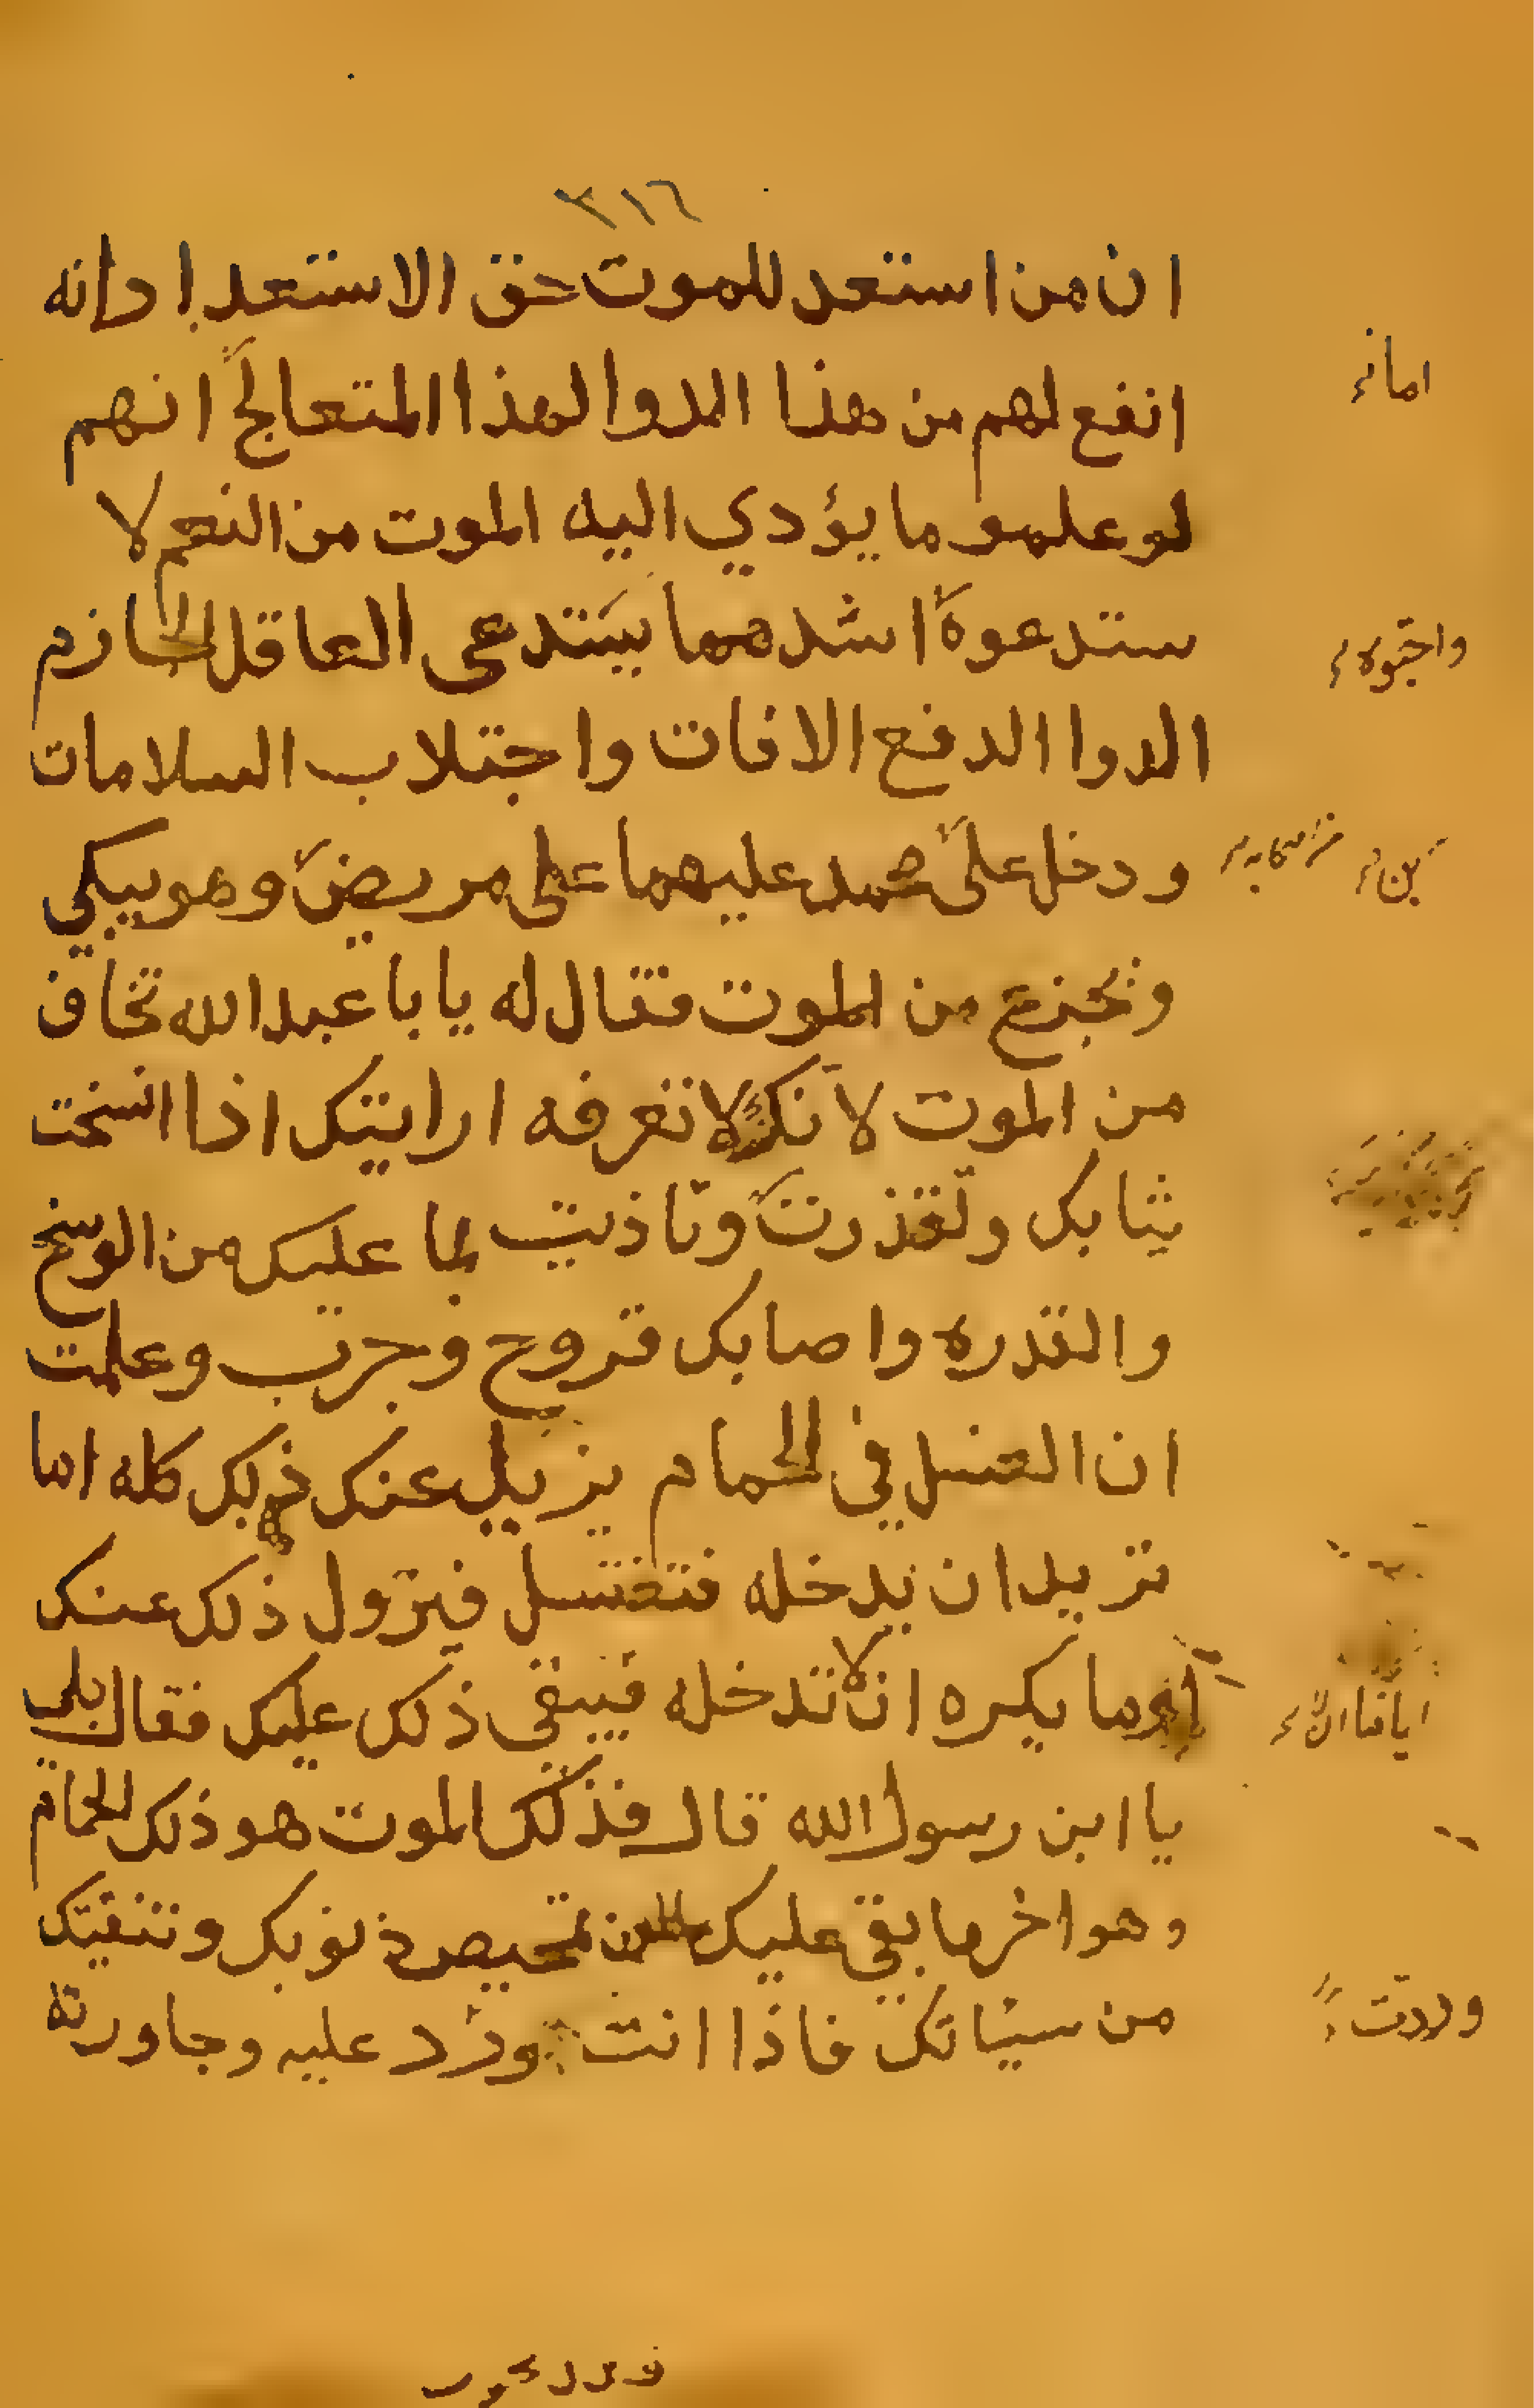 ٣١٦
ان من استعد للموت حق الاستعداد انه
انفع لهم من هذا الدوا لهذا المتعالج انهم
اما
لو علمو ما يؤدي اليه الموت من النعيم لا
ستدعوه اشد مما يستدعي العاقل الحازم
واحبوه
الدوا لدفع الافات واجتلاب السلامات
ودخل علي محمد عليهما على مريض وهو يبكي
بن
وتجزع من الموت فقال له يا با عبد الله تخاف
من الموت لانك لا تعرفه ارايتك اذا اتسخت
ثيابك وتقذرت وتاذيت بما عليك من الوسخ
والقذره واصابك قروح وجرب وعلمت
ان الغسل في الحمام يزيل عنك ذلك كله اما
تريد ان تدخله فتغتسل فيزول ذلك عنك
ما يكره ان لا تدخله فيبقى ذلك عليك فقال بلى
يا ابن رسول الله قال فذلك الموت هو ذلك الحمام
وهو اخر ما بقي عليك من تمحيص ذنوبك وتنقيتك
من سيئاتك فاذا انت ورد عليه وجاورته
وردت